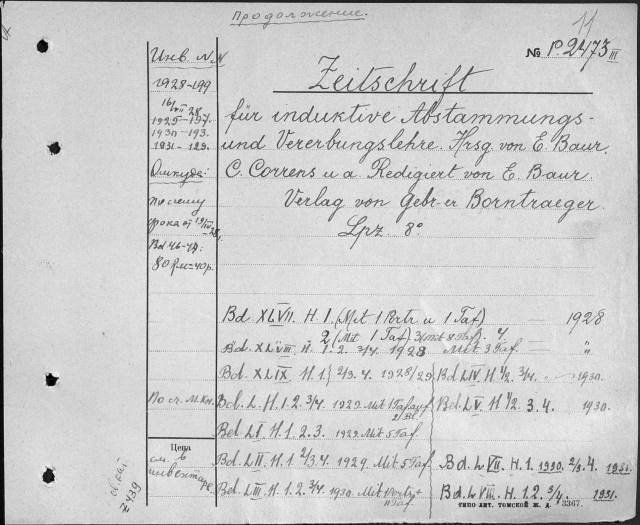 Продолжение.
11
№ Р°2473 III
Инв. NN
1928-199
1930-193.
1931-129.
Откуда:
По счету
Bd 46-47:
Zeitschrift
für induktive Abstammungs-
und Vererbungslehre. Hrsg. von E. Baur,
C. Correns u a. Redigiert von E. Baur.
Verlag von Gebr-er Borntraeger.
Lpz. 8°
Bd XLVII. H. 1. (Mit 1 Portr. u 1 Taf) — 1928
2 (Mit 1 Taf) 3 (mit 8 Taf.) 4.
Bd. XLVIII. H. 1. 2. 3/4. 1928 Mit 3 Taf. — "
Bd. XLIX H 1. 2/3. 4. 1928/29
Bd LIV. H 1/2. 3/4. — 1930.
По сч. М. Кн.
Bd. L. H. 1. 2. 3/4. 1929. Mit 1 Taf auf 2 Bl.
Bd. LV. H 1/2. 3. 4. 1930.
Bd. LI. H. 1. 2. 3. 1929. Mit 5 Taf.
Цена
см. в
инвентаре.
Bd. LII. H. 1 2/3. 4. 1929. Mit 5 Taf
Bd. LVII. H. 1. 1930. 2/3. 4. 1931.
Bd. LIII. H. 1. 2. 3/4. 1930. Mit Portr +
11 Taf
Bd. LVIII. H. 1. 2. 3/4. 1931.
ТИПО-ЛИТ. ТОМСКОЙ Ж. Д. 3367.